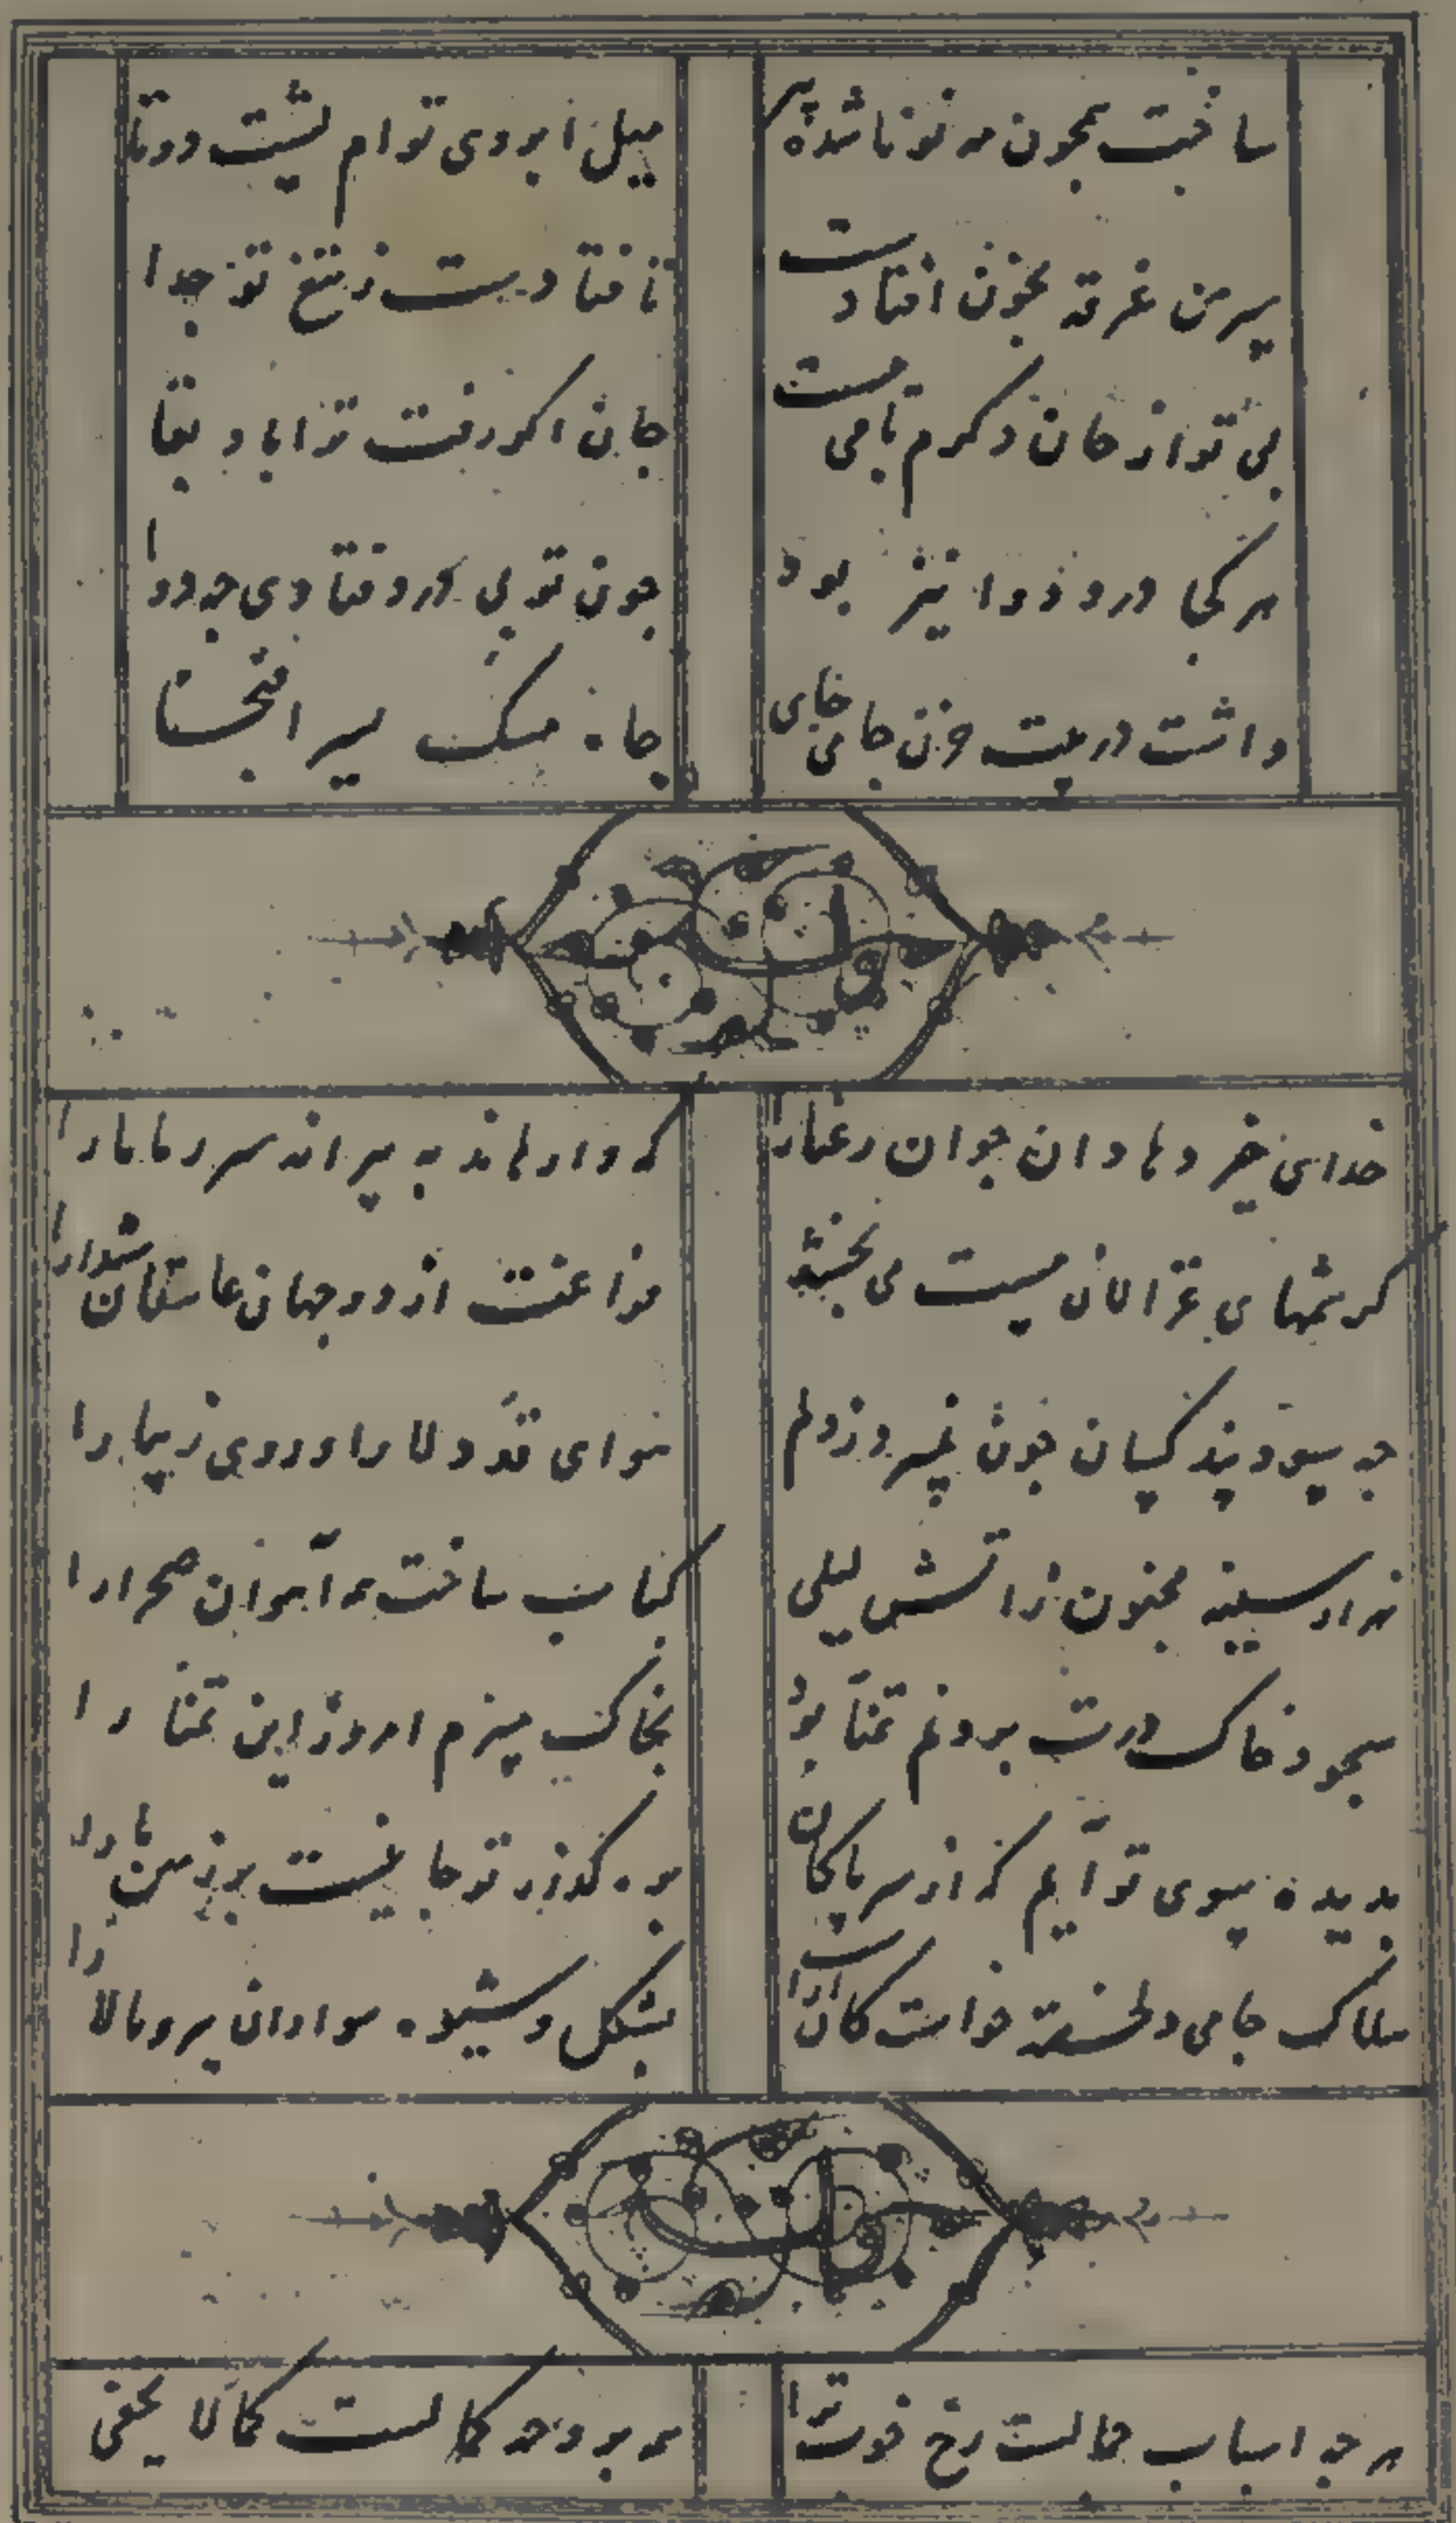 ساخت همچون مه نو ناشده پیر
میل ابروی توام پشت دوتا
پیرهن غرقه بخون افتادست
تا فتادست ز تیغ تو جدا
بی تو از جان دگرم نامی نیست
جان اگر رفت ترا باد بقا
هر کجا درد دوا نیز بود
چون تویی درد فتادی چه دوا
داشت در بیت حزن جامی جای
جاء
خدای خیر دهاد آن جوان رعنا را
که وارهاند به پیرانه سر ز ما ما را
کرشمهای غزالان مست می بخشد
فراغت از دو جهان عاشقان شیدا را
چه سود پند کسان چون نمیبرد ز دلم
هوای قد دلارا و روی زیبا را
هزار سینه مجنون ز آتش لیلی
کباب ساخت آهوان صحرا را
سجود خاک درت بردنم تمنا بود
بخاک میبرم امروز این تمنا را
بدیده سوی تو آیم که از سر پاکان
بره گذار تو جا نیست بر زمین پا را
هلاک جامی دلخسته خواست کان
بشکل و شیوه سوار آن بر و بالا را
هر چه اسباب جمالست رخ خوب ترا
همه بر وجه کمالست کما لا یخفی